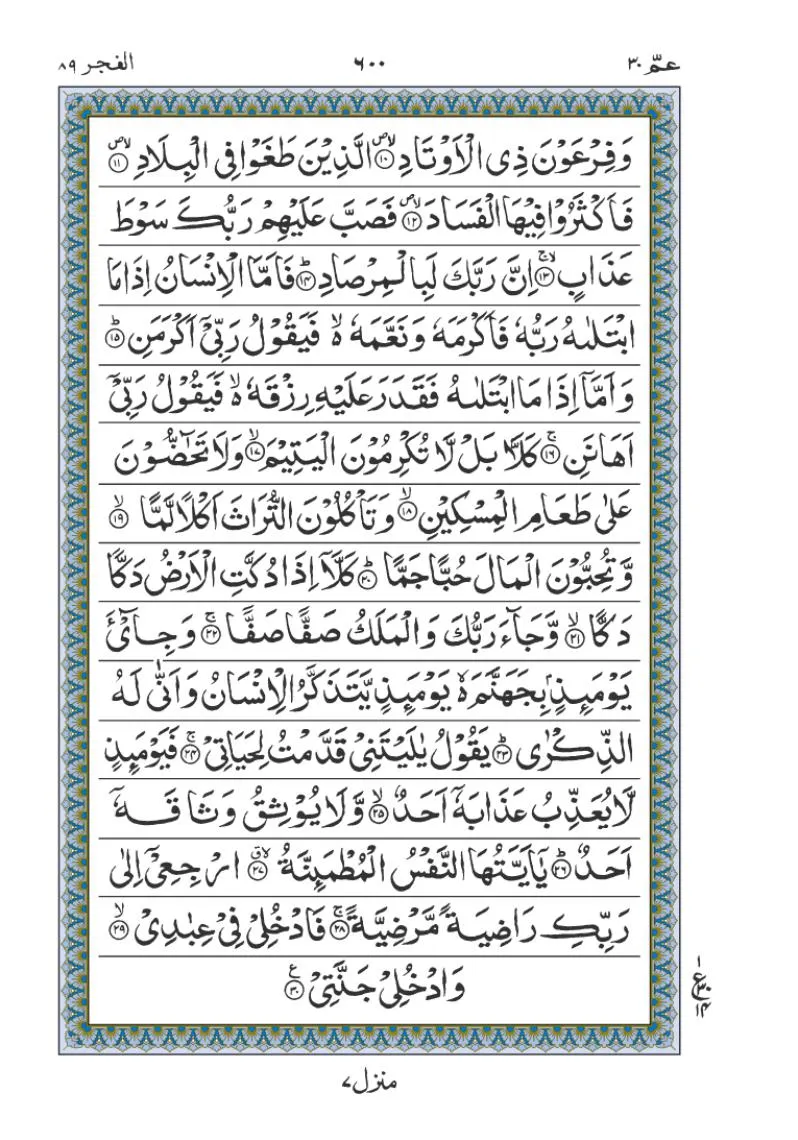 عمّ ۳۰ ۶۰۰ الفجر ۸۹
وَفِرْعَوْنَ ذِی الْاَوْتَادِ ۪ۙ‏﴿۱۰﴾ الَّذِیْنَ طَغَوْا فِی الْبِلَادِ ۪ۙ‏﴿۱۱﴾
فَاَكْثَرُوْا فِیْهَا الْفَسَادَ ۪ۙ‏﴿۱۲﴾ فَصَبَّ عَلَیْهِمْ رَبُّكَ سَوْطَ
عَذَابٍ ۚۙ‏﴿۱۳﴾ اِنَّ رَبَّكَ لَبِالْمِرْصَادِ ؕ‏﴿۱۴﴾ فَاَمَّا الْاِنْسَانُ اِذَا مَا
ابْتَلٰىهُ رَبُّهٗ فَاَكْرَمَهٗ وَنَعَّمَهٗ ۙ۬ فَیَقُوْلُ رَبِّیْۤ اَكْرَمَنِ ؕ‏﴿۱۵﴾
وَاَمَّاۤ اِذَا مَا ابْتَلٰىهُ فَقَدَرَ عَلَیْهِ رِزْقَهٗ ۙ۬ فَیَقُوْلُ رَبِّیْۤ
اَهَانَنِ ۚ‏﴿۱۶﴾ كَلَّا بَلْ لَّا تُكْرِمُوْنَ الْیَتِیْمَ ۙ‏﴿۱۷﴾ وَلَا تَحٰٓضُّوْنَ
عَلٰی طَعَامِ الْمِسْكِیْنِ ۙ‏﴿۱۸﴾ وَتَاْكُلُوْنَ التُّرَاثَ اَكْلًا لَّمًّا ۙ‏﴿۱۹﴾
وَّتُحِبُّوْنَ الْمَالَ حُبًّا جَمًّا ؕ‏﴿۲۰﴾ كَلَّاۤ اِذَا دُكَّتِ الْاَرْضُ دَكًّا
دَكًّا ۙ‏﴿۲۱﴾ وَّجَآءَ رَبُّكَ وَالْمَلَكُ صَفًّا صَفًّا ۚ‏﴿۲۲﴾ وَجِایْٓءَ
یَوْمَىِٕذٍۭ بِجَهَنَّمَ ۙ۬ یَوْمَىِٕذٍ یَّتَذَكَّرُ الْاِنْسَانُ وَاَنّٰی لَهُ
الذِّكْرٰی ؕ‏﴿۲۳﴾ یَقُوْلُ یٰلَیْتَنِیْ قَدَّمْتُ لِحَیَاتِیْ ۚ‏﴿۲۴﴾ فَیَوْمَىِٕذٍ
لَّا یُعَذِّبُ عَذَابَهٗۤ اَحَدٌ ۙ‏﴿۲۵﴾ وَّلَا یُوْثِقُ وَثَاقَهٗۤ
اَحَدٌ ؕ‏﴿۲۶﴾ یٰۤاَیَّتُهَا النَّفْسُ الْمُطْمَىِٕنَّةُ ۗۙ‏﴿۲۷﴾ ارْجِعِیْۤ اِلٰی
رَبِّكِ رَاضِیَةً مَّرْضِیَّةً ۚ‏﴿۲۸﴾ فَادْخُلِیْ فِیْ عِبٰدِیْ ۙ‏﴿۲۹﴾
وَادْخُلِیْ جَنَّتِیْ ﴿۳۰﴾ ع
۱
ع ۳۰
۱۴
منزل ۷